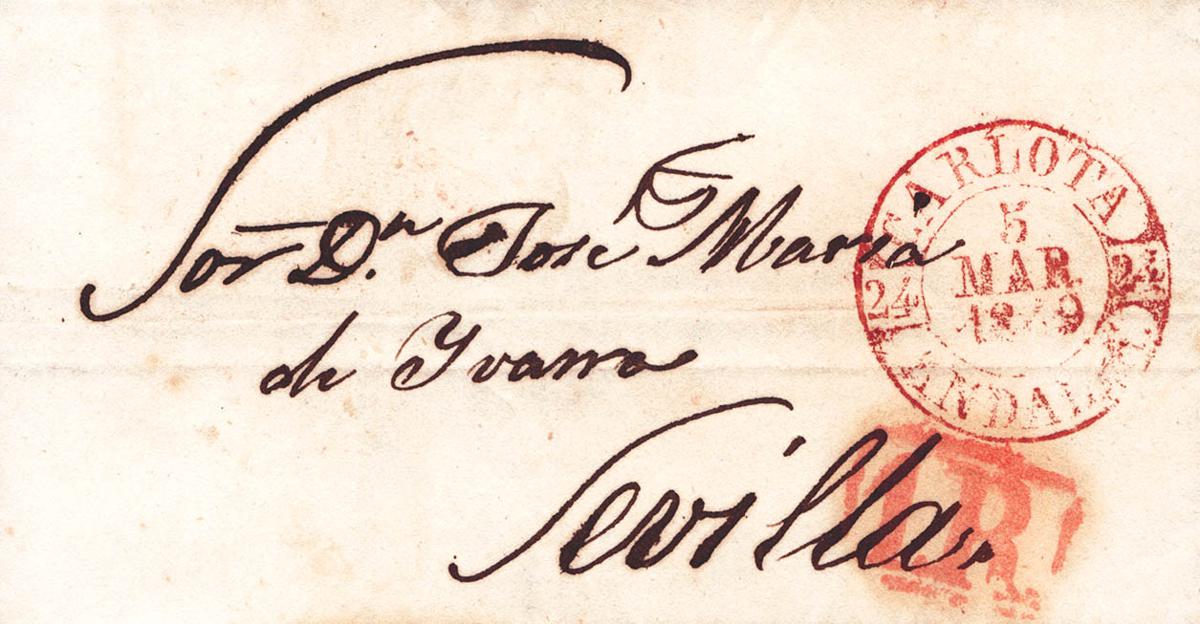 Sor. Dn. José María
de Ybarra
Sevilla.
CARLOTA
5
MAR
1849
24 24
ANDAL
R